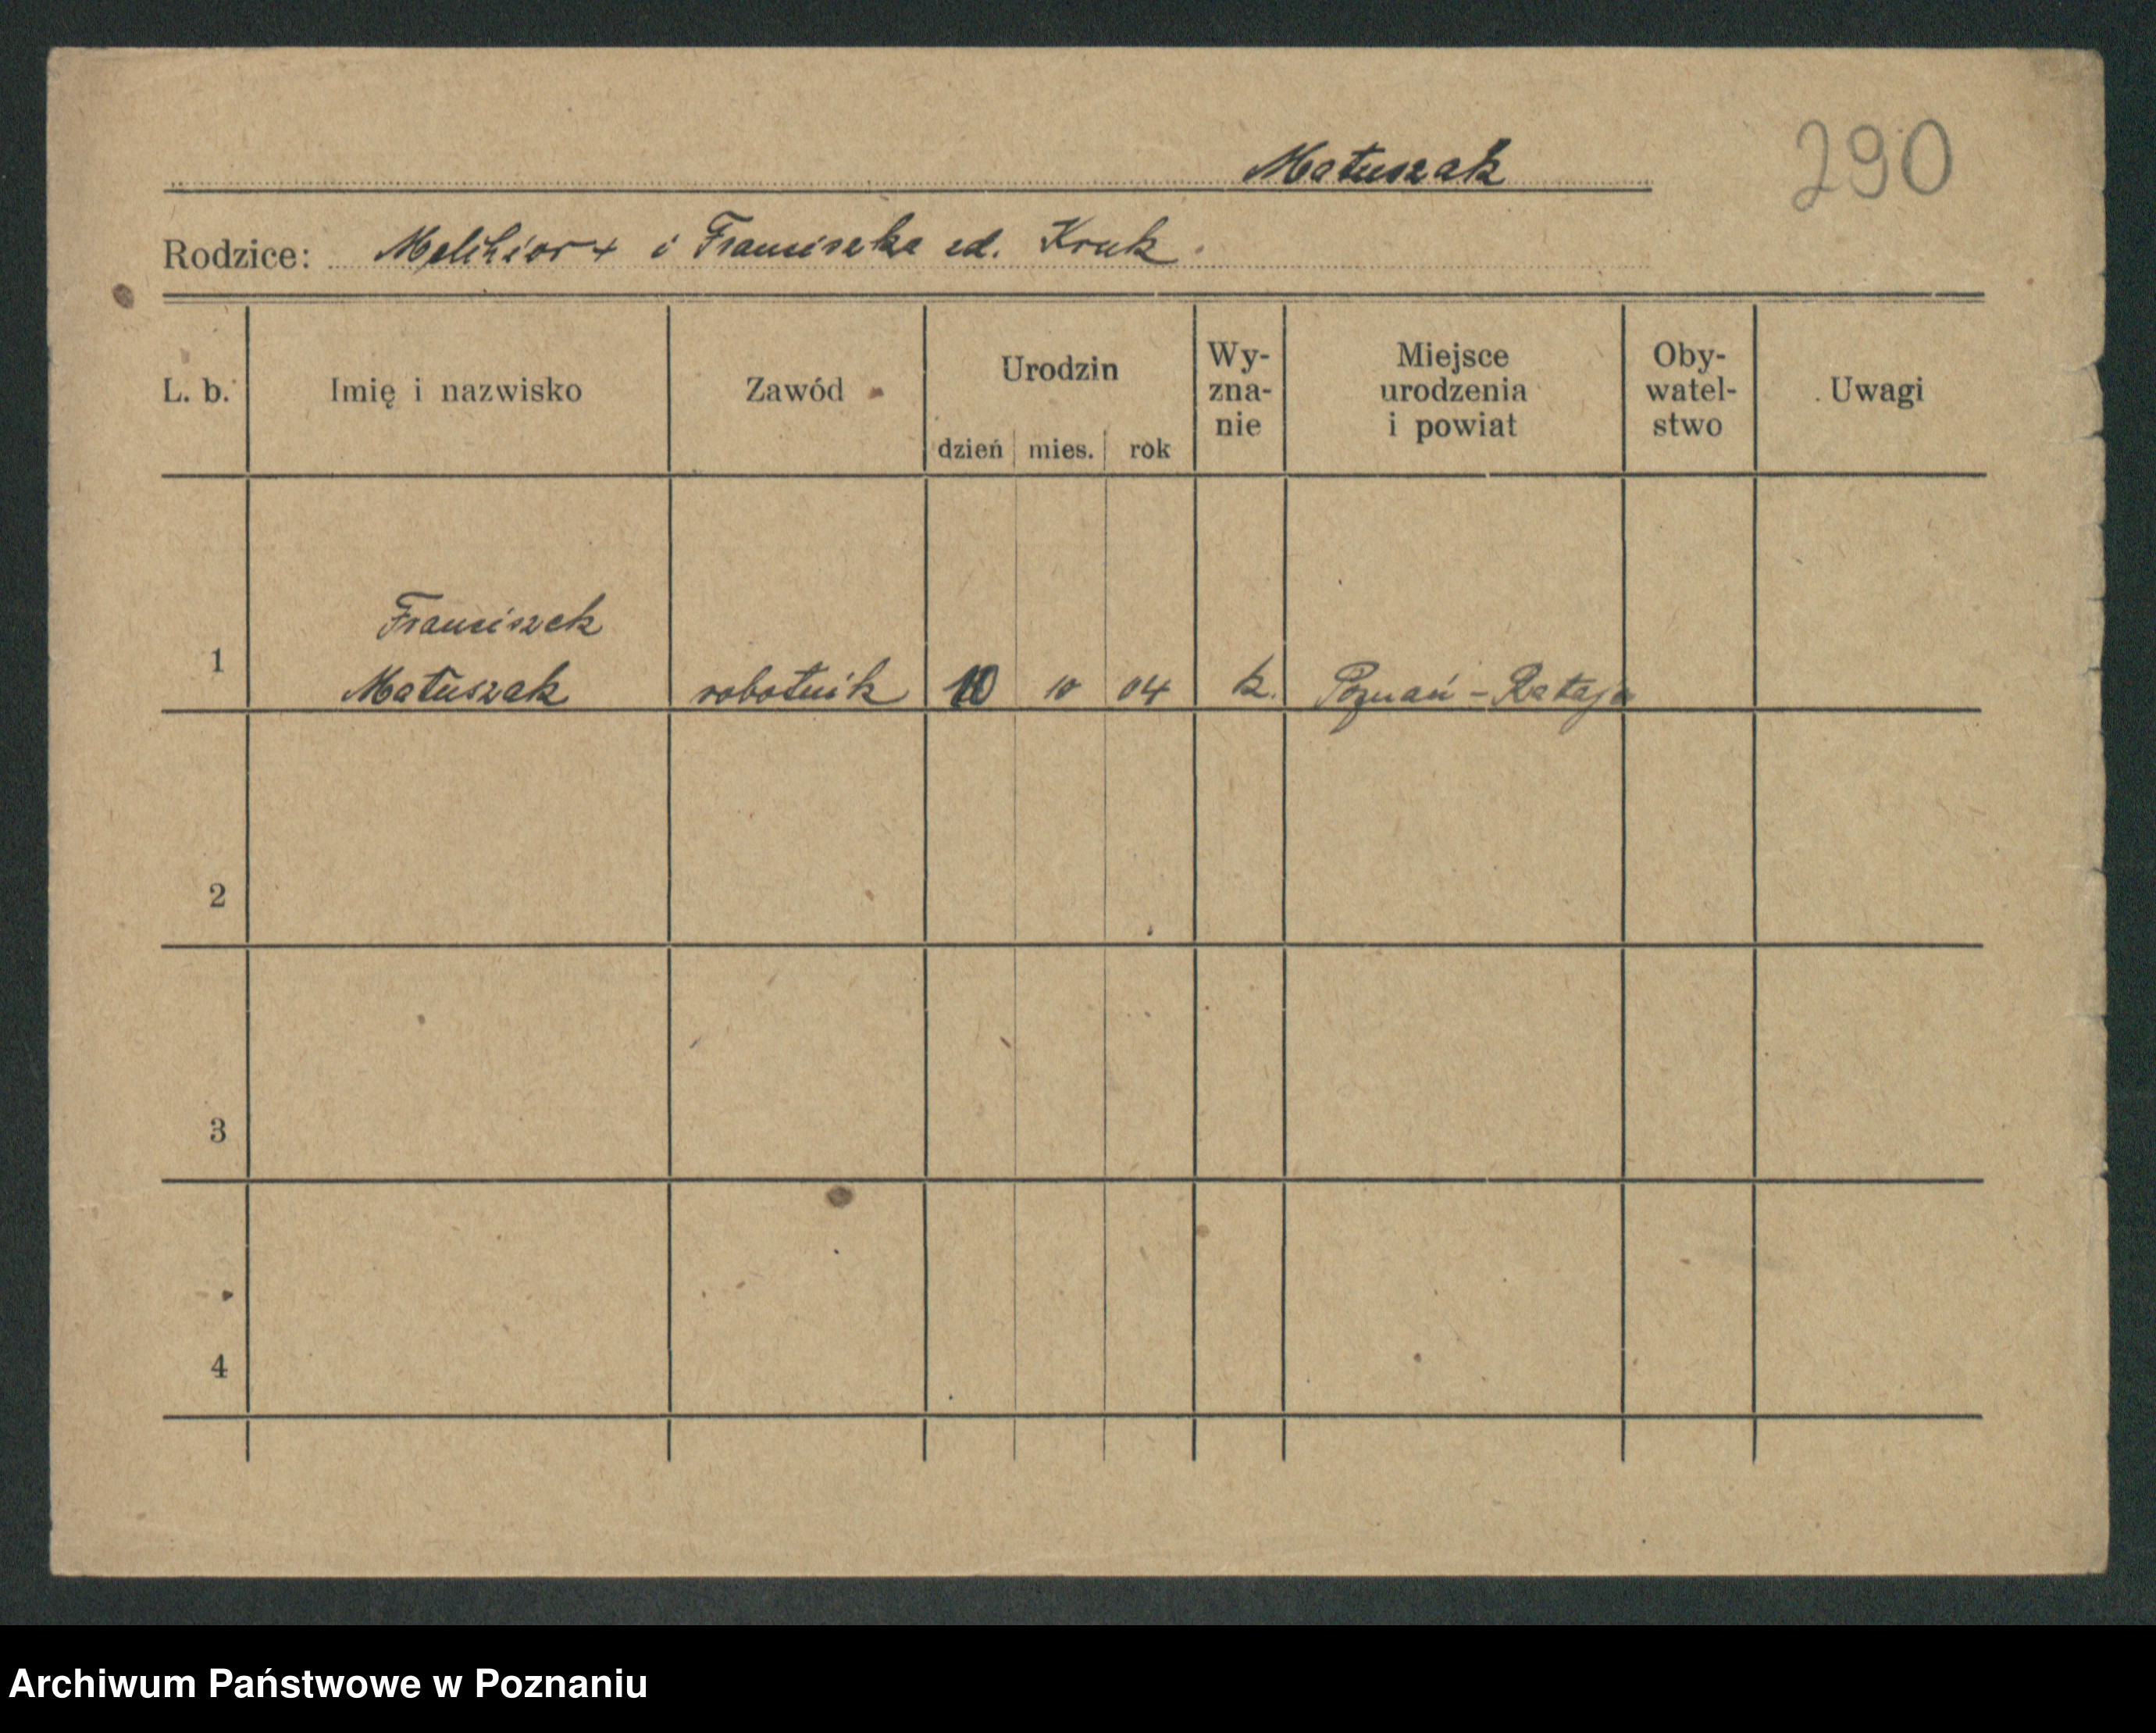 Matuszak
290
Rodzice: Melchior + i Franciszka zd. Kruk.
L. b. Imię i nazwisko Zawód Urodzin dzień mies. rok Wy-zna-nie Miejsce urodzenia i powiat Oby-watel-stwo Uwagi
Franciszek
1 Matuszak robotnik 10 10 04 k. Poznań - Rataje
2
3
4
Archiwum Państwowe w Poznaniu